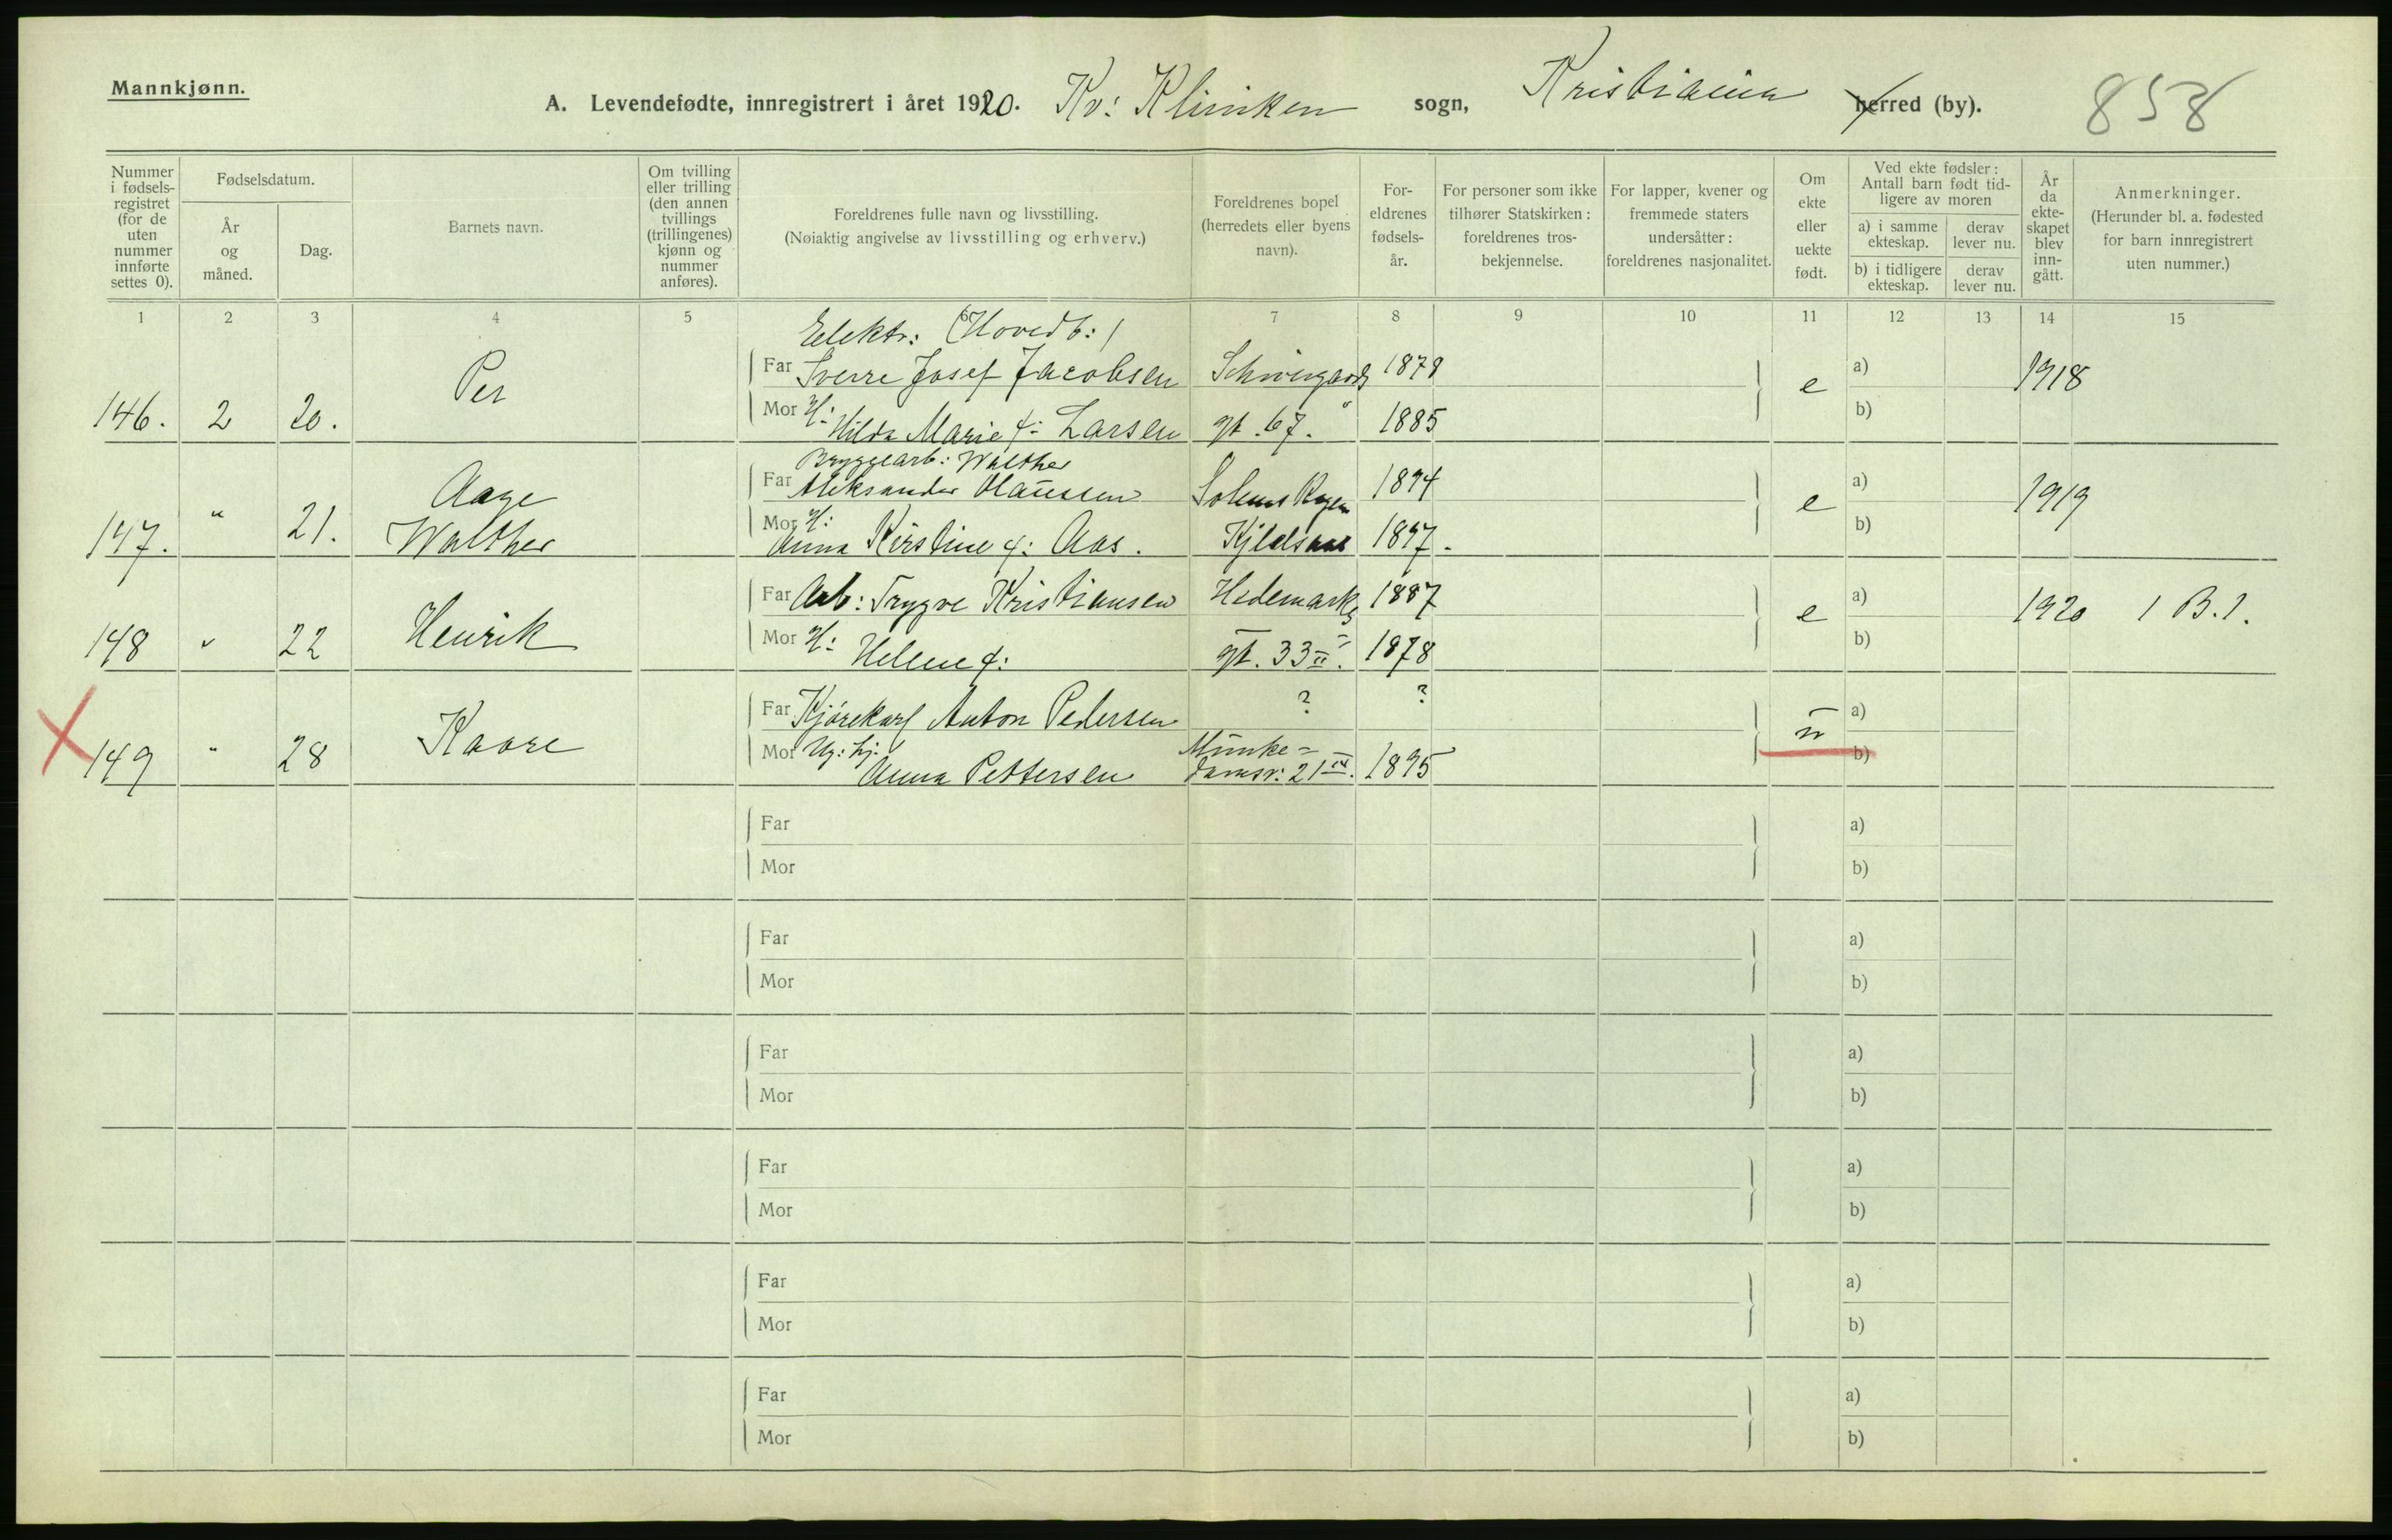 Mannkjønn.
A. Levendefødte, innregistrert i året 1920. Kv: Kliniken sogn, Kristiania herred (by). 858
Nummer i fødsels-registret (for de uten nummer innførte settes 0).
Fødselsdatum.
År og måned.
Dag.
Barnets navn.
Om tvilling eller trilling (den annen tvillings (trillingenes) kjønn og nummer anføres).
Foreldrenes fulle navn og livsstilling.
(Nøiaktig angivelse av livsstilling og erhverv.)
Foreldrenes bopel (herredets eller byens navn).
For-eldrenes fødsels-år.
For personer som ikke tilhører Statskirken: foreldrenes tros-bekjennelse.
For lapper, kvener og fremmede staters undersåtter: foreldrenes nasjonalitet.
Om ekte eller uekte født.
Ved ekte fødsler: Antall barn født tid-ligere av moren
a) i samme ekteskap.
derav lever nu.
b) i tidligere ekteskap.
derav lever nu.
År da ekte-skapet blev inn-gått.
Anmerkninger.
(Herunder bl. a. fødested for barn innregistrert uten nummer.)
1 2 3 4 5 6 7 8 9 10 11 12 13 14 15
Elektr: (Hovedb:)
Far Sverre Josef Jacobsen Schweigaards 1878 a)
146. 2 20. Per e 1918
Mor H: Hilda Marie f: Larsen gt. 67. 1885 b)
Bryggearb: Walther
Far Aleksander Olaussen 1894 a)
147. " 21. Aage Walther e 1919
Mor H: Anna Kirstine f: Aas. Kjelsaas 1897. b)
Far Arb: Trygve Kristiansen Hedemarks 1887 a)
148 " 22 Henrik e 1920 1 B.1.
Mor H: Helene f: gt. 33 II. 1878 b)
Far Kjørekarl Anton Pedersen ? ? a)
149 " 28 Kaare u
Mor Ug: Anna Pettersen Munke=damsv: 21 1895 b)
Far a)
Mor b)
Far a)
Mor b)
Far a)
Mor b)
Far a)
Mor b)
Far a)
Mor b)
Far a)
Mor b)